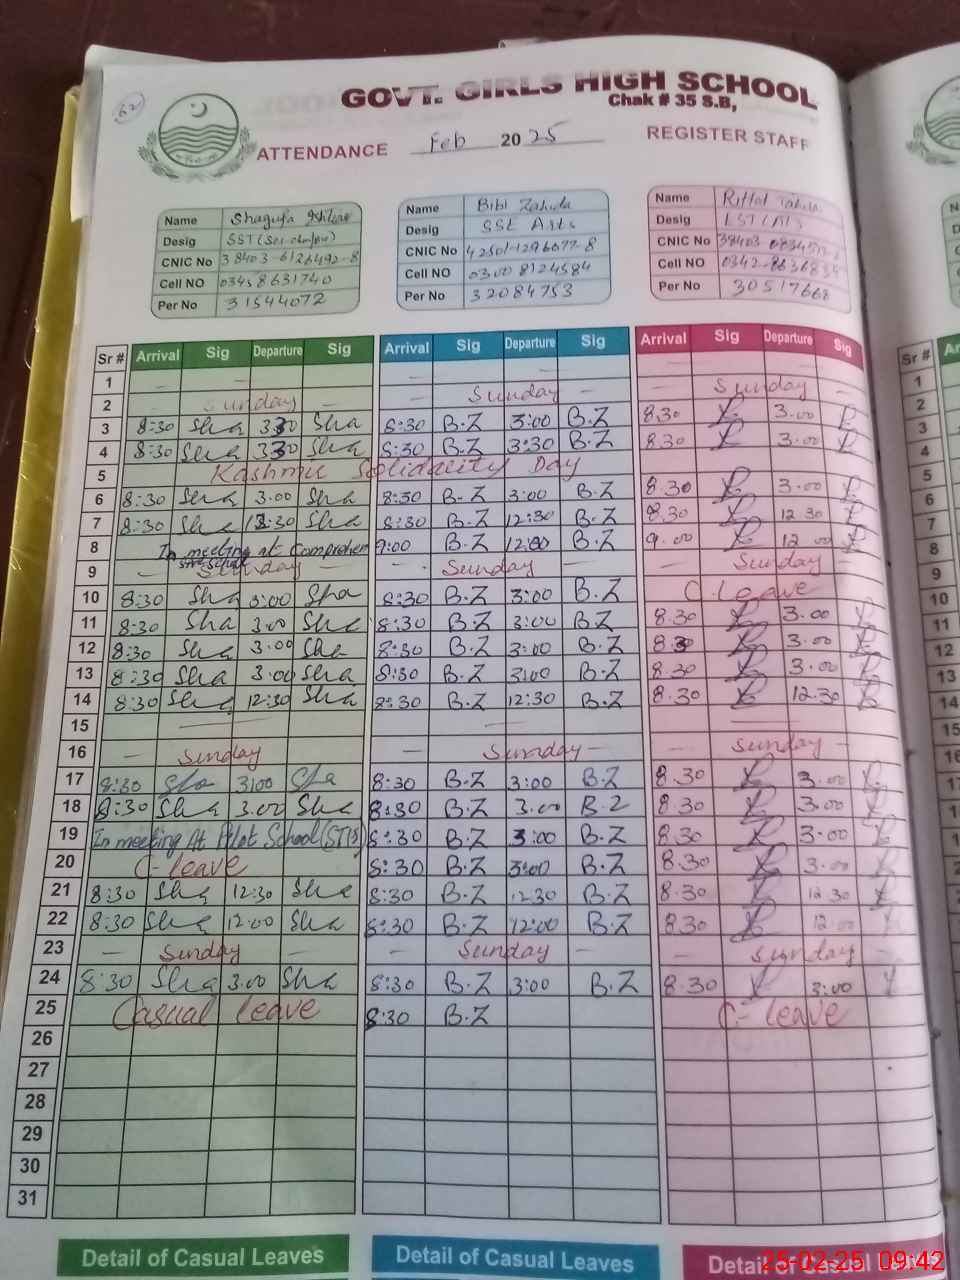 62
GOVT. GIRLS HIGH SCHOOL
Chak # 35 S.B,
ATTENDANCE Feb 2025 REGISTER STAFF
Name Shagufta Name Bibi Zahida Name
Desig SST Desig SSt Arts Desig
CNIC No 38403-6126492-8 CNIC No 42501-1296077-8 CNIC No
Cell NO 03458631740 Cell NO 03008124584 Cell NO
Per No 31544072 Per No 32084753 Per No 30517668
Sr # Arrival Sig Departure Sig Arrival Sig Departure Sig Arrival Sig Departure Sig
1 — — — —
2 - Sunday - - Sunday - - Sunday -
3 8:30 Sha Sha 8:30 B.Z 3:00 B.Z 8.30 3.00
4 8:30 Sha Sha 8:30 B.Z 3:30 B.Z 8.30 3.00
5 Kashmir Solidacity Day
6 8:30 Sha 3.00 Sha 8:30 B-Z 3:00 B.Z 8.30 3.00
7 8:30 Sha 12:30 Sha 8:30 B.Z 12:30 B.Z 8.30 12 30
8 In meeting at Comprehen 9:00 B.Z 12:00 B.Z 9.00 12 00
9 - Sunday - - Sunday - - Sunday -
10 8:30 Sha 3:00 Sha 8:30 B.Z 3:00 B.Z C.Leave
11 8:30 Sha 3.00 Sha 8:30 B.Z 3:00 B.Z 8.30 3.00
12 8:30 Sha 3.00 Sha 8:30 B.Z 3:00 B.Z 8.30 3.00
13 8:30 Sha 3.00 Sha 8:30 B.Z 3:00 B.Z 8.30 3.00
14 8:30 Sha 12:30 Sha 8:30 B.Z 12:30 B.Z 8.30 12.30
15 — — —
16 - Sunday - Sunday - - Sunday -
17 8:30 Sha 3:00 Sha 8:30 B.Z 3:00 B.Z 8.30 3.00
18 8:30 Sha 3.00 Sha 8:30 B.Z 3.00 B.Z 8.30 3.00
19 In meeting At Pilot School 8:30 B.Z 3:00 B.Z 8.30 3.00
20 C-leave 8:30 B.Z 3:00 B.Z 8.30 3.00
21 8:30 Sha 12:30 Sha 8:30 B.Z 12.30 B.Z 8.30 12.30
22 8:30 Sha 12:00 Sha 8:30 B.Z 12:00 B.Z 8.30 12.00
23 - Sunday - - Sunday - - Sunday -
24 8:30 Sha 3.00 Sha 8:30 B.Z 3:00 B.Z 8.30 3:00
25 Casual leave 8:30 B.Z C-leave
26
27
28
29
30
31
Detail of Casual Leaves Detail of Casual Leaves Detail of Casual Leave
25-02-25 09:42